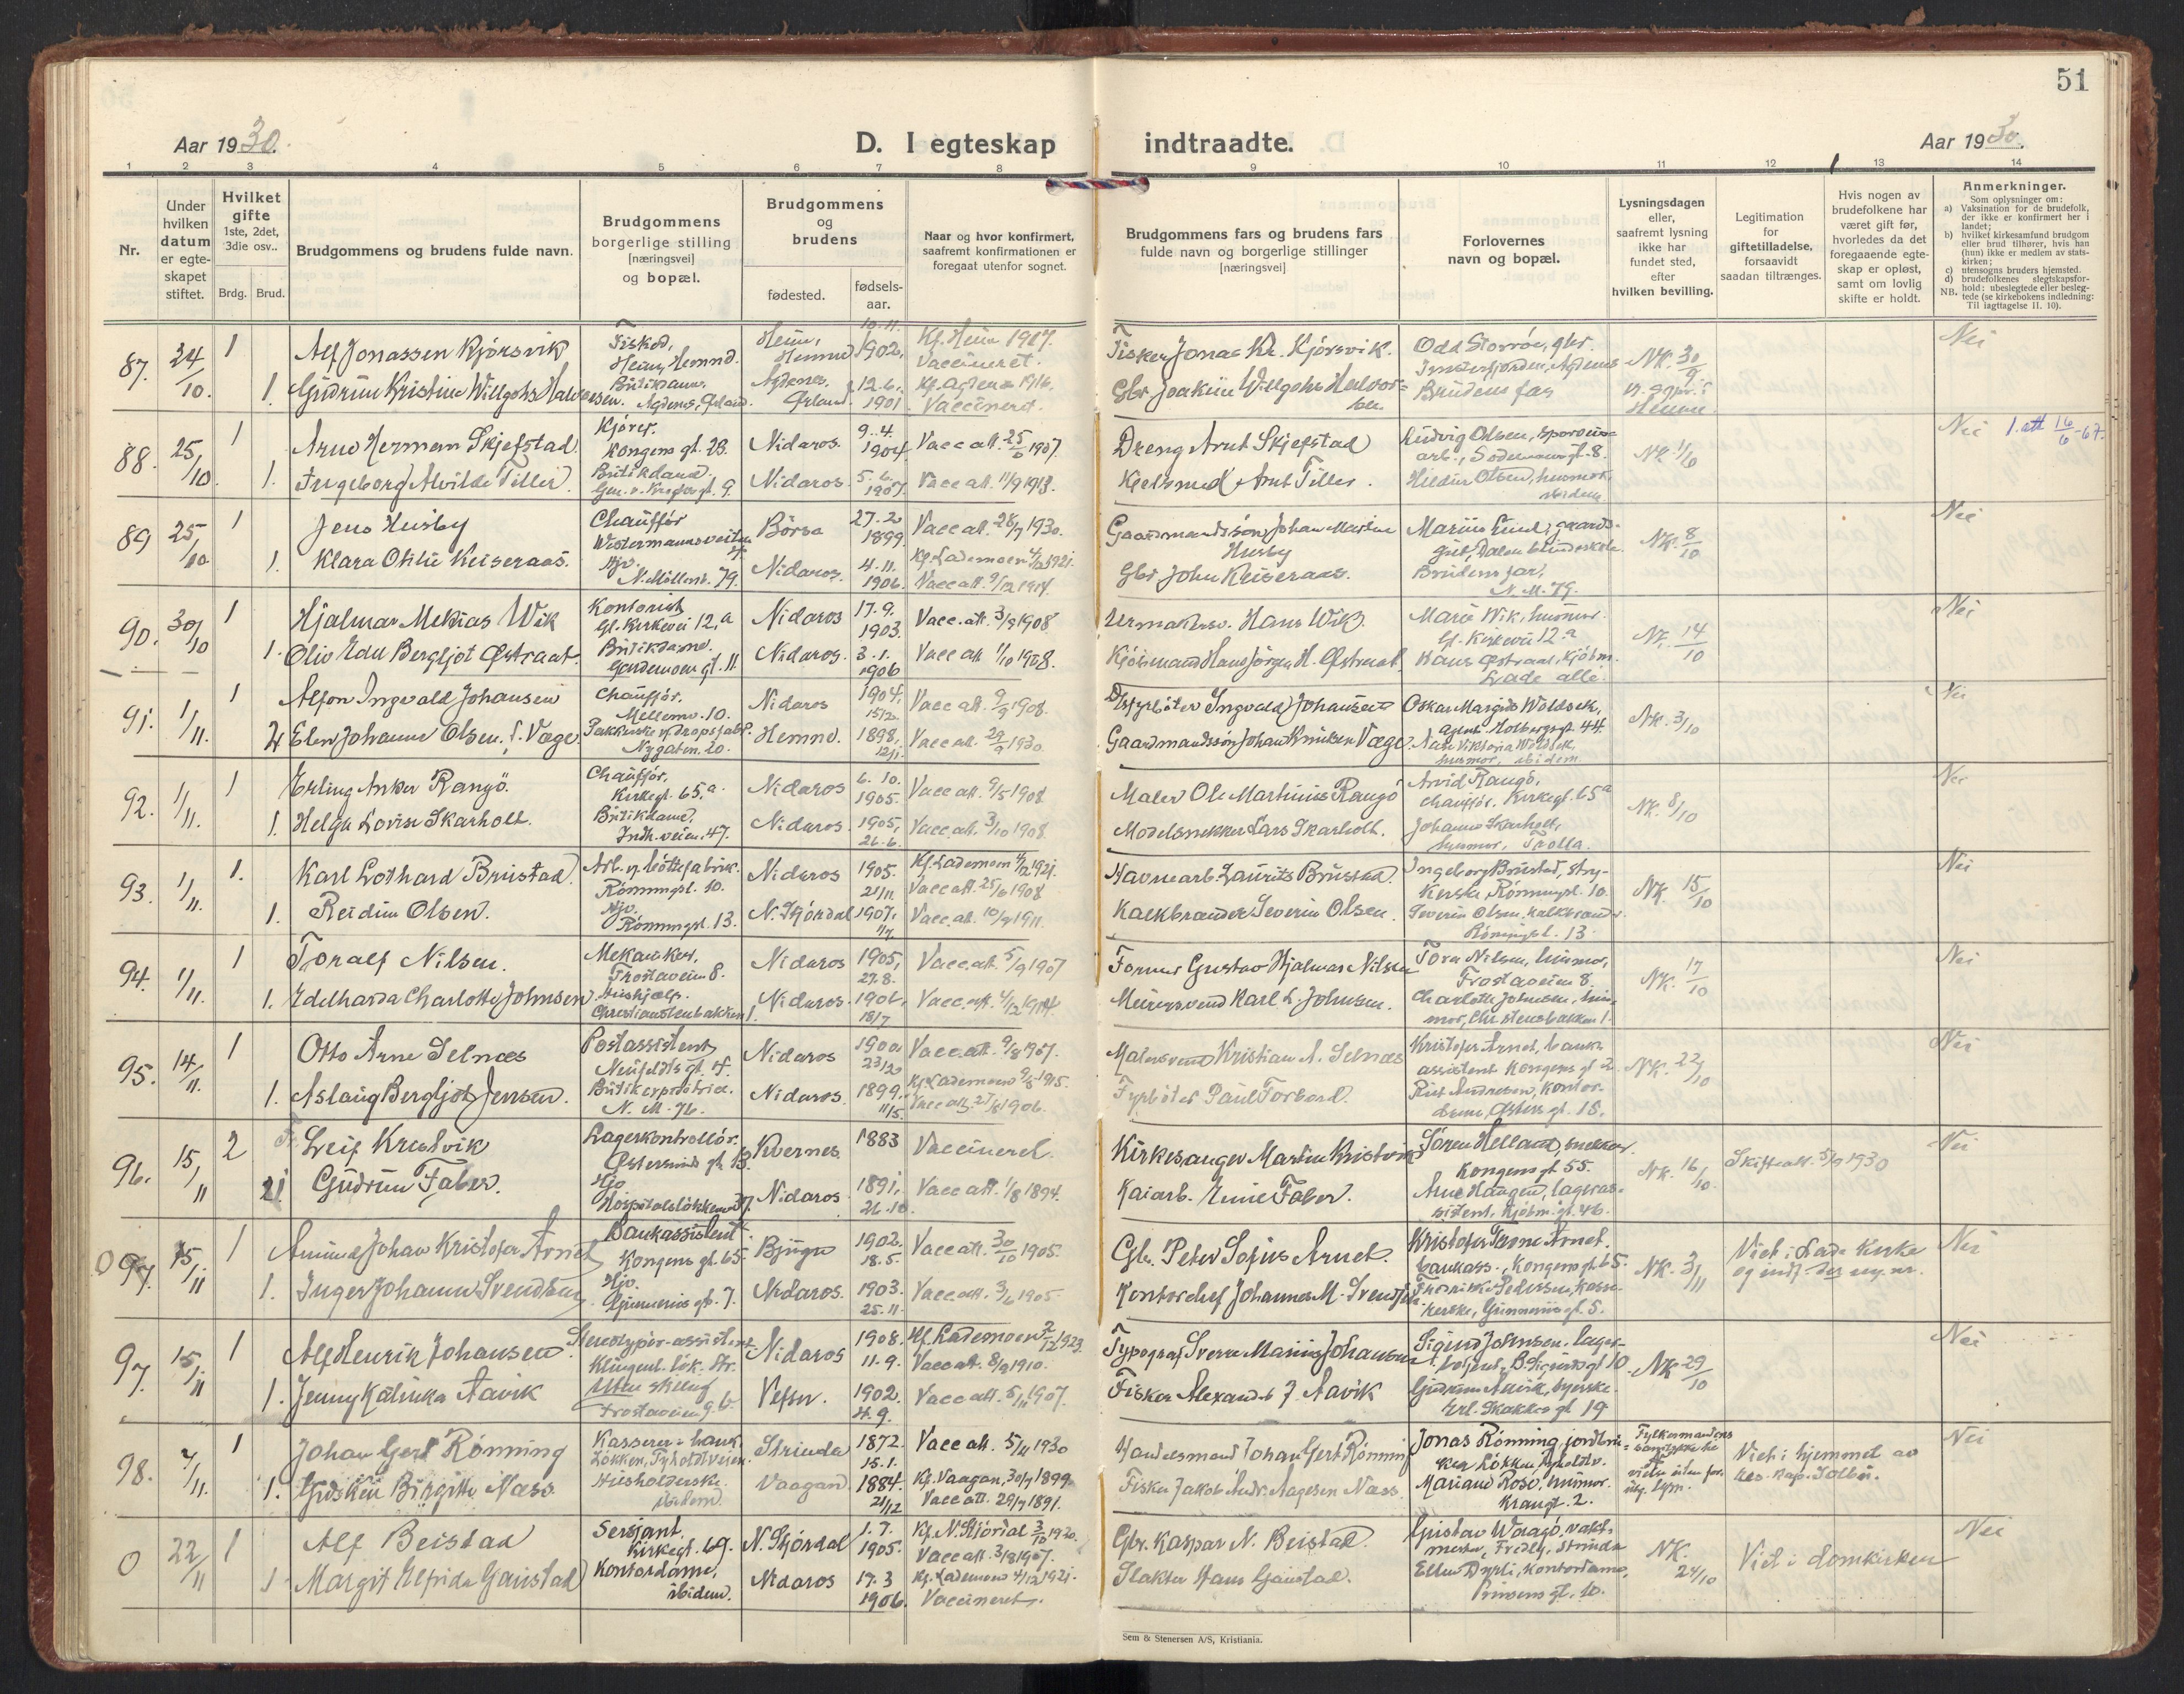 51
Aar 1930.
D. I egteskap indtraadte.
Aar 1930.
1 2 3 4 5 6 7 8 9 10 11 12 13 14
Nr.
Under hvilken datum er egteskapet stiftet.
Hvilket gifte 1ste, 2det, 3die osv..
Brdg. Brud.
Brudgommens og brudens fulde navn.
Brudgommens borgerlige stilling [næringsvei] og bopæl.
Brudgommens og brudens
fødested.
fødselsaar.
Naar og hvor konfirmert, saafremt konfirmationen er foregaat utenfor sognet.
Brudgommens fars og brudens fars fulde navn og borgerlige stillinger [næringsvei]
Forlovernes navn og bopæl.
Lysningsdagen eller, saafremt lysning ikke har fundet sted, efter hvilken bevilling.
Legitimation for giftetilladelse, forsaavidt saadan tiltrænges.
Hvis nogen av brudefolkene har været gift før, hvorledes da det foregaaende egteskap er opløst, samt om lovlig skifte er holdt.
Anmerkninger.
Som oplysninger om:
a) Vaksination for de brudefolk, der ikke er konfirmert her i landet;
b) hvilket kirkesamfund brudgom eller brud tilhører, hvis han (hun) ikke er medlem av statskirken;
c) utensogns bruders hjemsted.
d) brudefolkenes slegtskapsforhold: ubeslegtede eller beslegtede (se kirkebokens indledning: Til iagttagelse II. 10).
NB.
87. 24/10. 1 Alf Jonassen Kjørsvik Fisker, Heim, Hemnd. Heim, Hemnd 10.11. 1902. Kf. Heim 1917. Vaccineret. Fisker Jonas Kr. Kjørsvik. Odd Storrøe, gbr. Agdenes NK. 30/9 Nei
1. Gudrun Kristine Willgohs Halvorsen. Butikdame, Agdenes, Ørland. Agdenes, Ørland. 12.6. 1901 Kf. Agdenes 1916. Vaccineret. Gbr Joakim Willgohs Halvorsen. Brudens far
88. 25/10. 1 Arne Herman Skjefstad Kjører. Kongens gt. 23. Nidaros. 9.4. 1904 Vacc att. 25/6 1907. Dreng Arnt Skjefstad Ludvig Olsen, sporveisarb., NK 1/6 Nei 1. att 16/6-67.
1. Ingeborg Alvilde Tiller. Butikdame. Gen. v. Kroghs gt. 9. Nidaros. 5.6. 1907. Vacc att. 11/9 1913. Kjelsmed Arnt Tiller. Olsen, husmor, ibidem
89 25/10 1 Jens Husby Chauffør Wistermannsveiten Børsa 27.2 1899 Vacc att. 28/7 1930. Gaardmandssøn Johan Martin Husby Marius Lund, gaardsgut, Dalen blindeskole NK. 8/10 Nei
1. Klara Otilie Keiseraas. Hjv. N. Møllenb. 79. Nidaros. 4.11. 1906. Kf. Lademoen 4/12 1921. Vacc att. 9/12 1914. Gbr John Keiseraas. Brudens far, N. M. 79.
90. 30/10 1 Hjalmar Mekias Wik Kontorist Gl. Kirkevei 12.a Nidaros 17.9. 1903. Vacc. att. 3/9 1908 Urmakersv. Hans Wik Marie Wik, husmor. Gl. Kirkevei 12.a NK. 14/10 Nei
1. Oliv Edel Bergljot Østraat. Butikdame. Gardemoens gt. 11. Nidaros. 3.1. 1906 Vacc att 1/10 1908. Kjøbmand Hans Jørgen H. Østraat Hans Østraat, kjøbm. Lade alle.
91. 1/11. 1 Alfon Ingvald Johansen Chauffør, Mellemv. 10. Nidaros 1904, 15/12 Vacc att. 9/9 1908. Dsfyrbøter Ingvald Johansen Oskar Margido Woldsek, agent Holbergsgt. 44. NK. 3/10 Nei
2. Elen Johanne Olsen, f. Vage. Pakkerske v/ dropsfabr. Nygaten. 20. Hemne. 1898, 12/1 Vacc att. 29/9 1930. Gaardmandssøn Johan Knutsen Vage. Aase Viktoria Woldsek, husmor, ibidem.
92. 1/11. 1 Erling Anker Rangø. Chauffør, Kirkegt. 65.a Nidaros 6.10. 1905. Vacc att. 9/5 1908 Maler Ole Martinus Rangø Arvid Rangø, chauffør, Kirkegt. 65a NK. 8/10 Nei
1. Helga Lovise Skarholt. Butikdame, Indh. veien. 47. Nidaros. 1905, 26.6. Vacc. att. 3/10 1908. Modelsnekker Lars Skarholt. Johanne Skarholt, husmor, Trolla.
93. 1/11. 1. Karl Lothard Brustad. Arb. v. bøttefabrik. Rønningsl. 10. Nidaros 1905. 21/11 Kf. Lademoen 4/12 1921. Vacc att. 25/6 1908 Havnearb. Laurits Brustad. Ingeborg Brustad, strykerske, Rønningsl. 10. NK. 15/10 Nei
1. Reidun Olsen. Hjv. Rønningsl. 13. N. Stjørdal 1907, 1/7 Vacc. att. 10/9 1911. Kalkbrænder Severin Olsen. Severin Olsen, kalkbrænder Rønningsl. 13.
94. 1/11. 1 Toralf Nilsen. Mekaniker, Frostaveien 8. Nidaros 1905, 27.8. Vacc. att. 5/9 1907 Former Gustav Hjalmar Nilsen Tora Nilsen, husmor, Frostaveien 8. NK. 17/10 Nei
1. Edelharda Charlotte Johnsen Hushjælp. Christianstenbakken 1. Nidaros. 1906, 18/7 Vacc. att. 4/12 1914. Murersvend Karl L. Johnsen. Charlotte Johnsen, husmor, Chr. stensbakken 1.
95. 14/11. 1 Otto Arne Selnæs Postassistent, Neufeldts gt. 4. Nidaros 1900. 23/12 Vacc. att. 9/8 1907. Malersvend Kristian A. Selnæs Kristofer Arnet, bankassistent Kongens gt NK. 22/10 Nei
1. Aslaug Bergljot Jensen. Butikerpedtrice. N. M. 76. Nidaros. 1899. 11/5 Kf. Lademoen 9/5 1915. Fyrbøter Paul Forbord. Andresen, kontordame, Østers gt. 18.
96. 15/11 2 Leif Kristvik Lagerkontrollør. Kvernes 1883 Vaccineret. Kirkesanger Martin Kristvik Søren Helland, snekker. Kongens gt 55. NK. 16/10. Skifteatt. 5/9 1930 Nei
Gudrun Faber. Hjv Hospitalsløkken Nidaros 1891, 26.10. Vacc att. 1/8 1894. Kaiarb. Emil Faber. Arne Haugen, lagerassistent, Kjøbm. gt. 46.
97. 15/11 1 Amund Johan Kristofer Arnet Bankassistent Kongens gt. 65. Bjugn 1902. 18.5. Vacc att. 30/10 1905. Gbr. Peter Sofus Arnet. Kristofer Arnet. bankass., Kongens gt 65. NK. 3/11 Viet i Lade kirke Nei
1. Inger Johanne Svendsen Hjv. Gunnerus gt. 7. Nidaros. 1903. 25.11. Vacc att. 3/6 1905. Kontorchef Johannes M. Svendsen Pedersen, Gunnerus gt. 5.
97. 15/11 1 Alf Henrik Johansen Stereotypør-assistent Klingenb. løk. Str. Nidaros 1908. 11.9. Kf. Lademoen 2/12 1923. Vacc att. 8/9 1910. Typograf Sverre Marius Johansen Sigurd Johnsen, lager- NK 29/10 Nei
1. Jenny Katinka Aavik Frostaveien 9b. Vefsn. 1902. 4.9. Vacc att. 5/11 1907. Fisker Alexander J. Aavik Gudrun Aavik, syerske. Erl. Skakkes gt 19
98. 7/11. 1 Johan Gert Rønning Kasserer i bank Løkken, Tyholdtveien Strinda 1872. 15.1. Vacc att. 5/11 1930 Handelsmand Johan Gert Rønning Jonas Rønning, jordbruker Løkken, Tyholdtv. Fylkesmandens Viet i hjemmet av res. kap. Solbu. Nei
1. Gidsken Birgitte Næss Husholderske ibidem. Vaagan 1884. 21/12 Kf. Vaagan, 30/7 1899. Vacc att. 29/7 1891. Fisker Jakob Andr. Aagesen Næss. Mariane Rosø, husmor. Krangt. 2.
0 22/11 1 Alf Beistad Sersjant, Kirkegt. 69. N. Stjørdal 1.7. 1905. Kf. N. Stjørdal 3/10 1920. Vacc att. 3/8 1907. Gbr. Kaspar N. Beistad. Gustav Waagø, vaktmester, Fredly, Strinda NK. 24/10 Viet i domkirken Nei
1 Margit Elfrida Gaustad Kontordame, ibidem. Nidaros 17.3 1906. Kf. Lademoen 4/12 1921. Vaccineret. Slakter Hans Gaustad. Ellen Dypli, kontordame, Prinsens gt. 10.
Sem & Stenersen A/S, Kristiania.